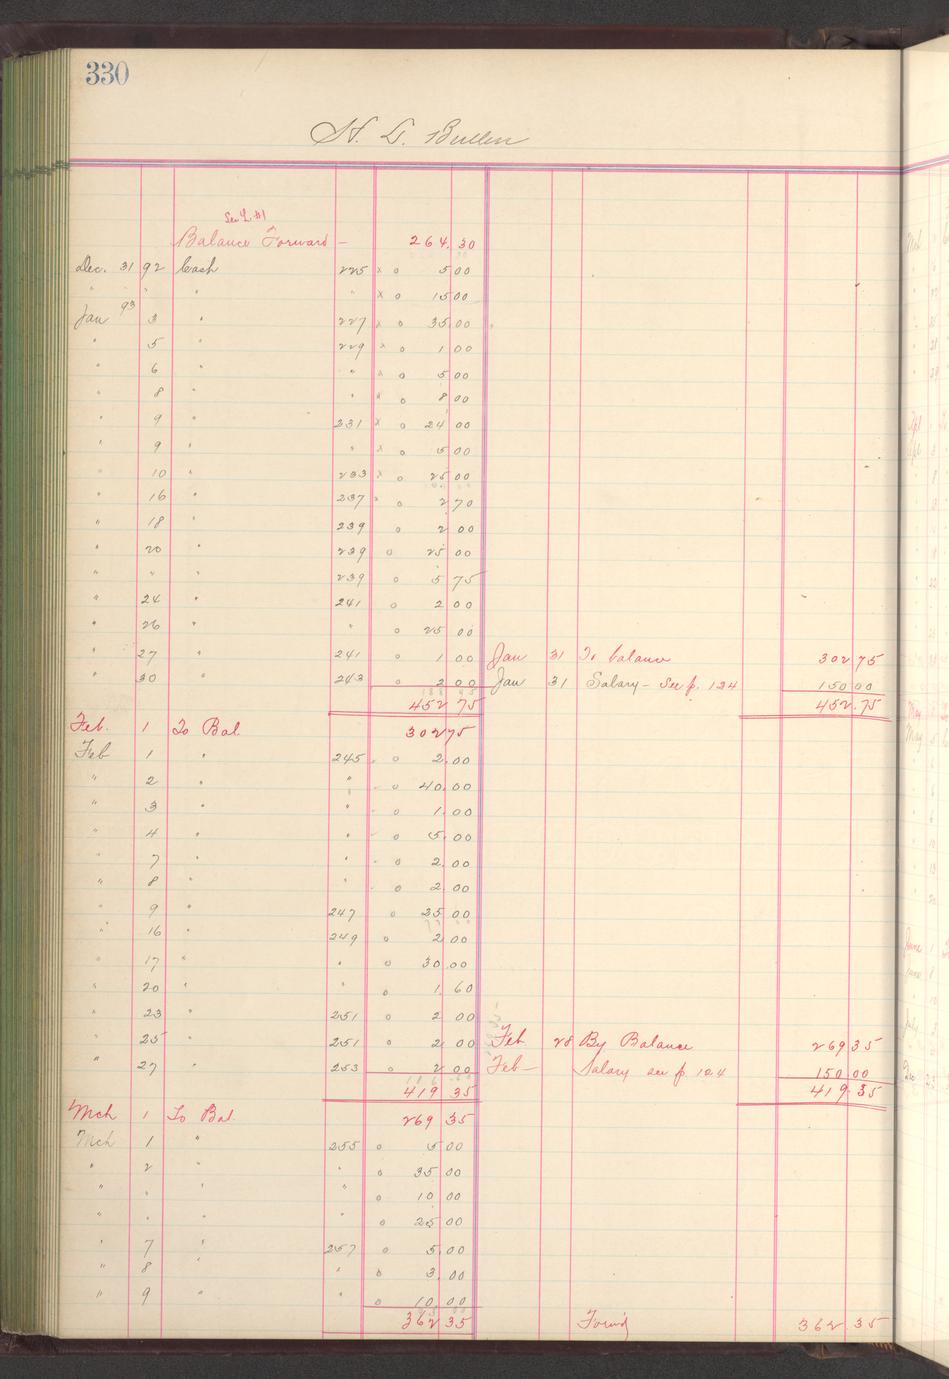 330
H. L. Bullen
See L. #1
Balance Forward - 264.30
Dec. 31 92 Cash 225 x o 5 00
" " " " " x o 15 00
Jan 93 3 " 227 x o 35 00
" 5 " 229 x o 1 00
" 6 " " x o 5 00
" 8 " x o 8 00
" 9 " 231 x o 24 00
" 9 " " x o 5 00
" 10 " 233 x o 25 00
" 16 " 237 x o 2 70
" 18 " 239 o 2 00
" 20 " 239 o 25 00
" " " 239 o 5 75
" 24 " 241 o 2 00
" 26 " " o 25 00
" 27 " 241 o 1 00 Jan 31 To balance 302 75
" 30 243 o 2 00 Jan 31 Salary - See p. 124 150 00
452 75 452.75
Feb. 1 To Bal. 302 75
Feb 1 " 245 o 2.00
" 2 " " o 40.00
" 3 " " o 1.00
" 4 " " o 5.00
" 7 " " o 2.00
" 8 " " o 2.00
" 9 " 247 o 25 00
" 16 " 249 o 2 00
" 17 " " o 30.00
" 20 " " o 1.60
" 23 " 251 o 2 00
" 25 " 251 o 2 00 Feb 28 By Balance 269 35
" 27 " 253 o 2 00 Feb - Salary see p. 124 150 00
419 35 419.35
Mch 1 To Bal. 269 35
Mch 1 " 255 o 5 00
" 2 " " o 35 00
" " " " o 10 00
" " " " o 25 00
" 7 " 257 o 5 00
" 8 " " o 3.00
" 9 " " o 10.00
362 35 Forw'd 362 35